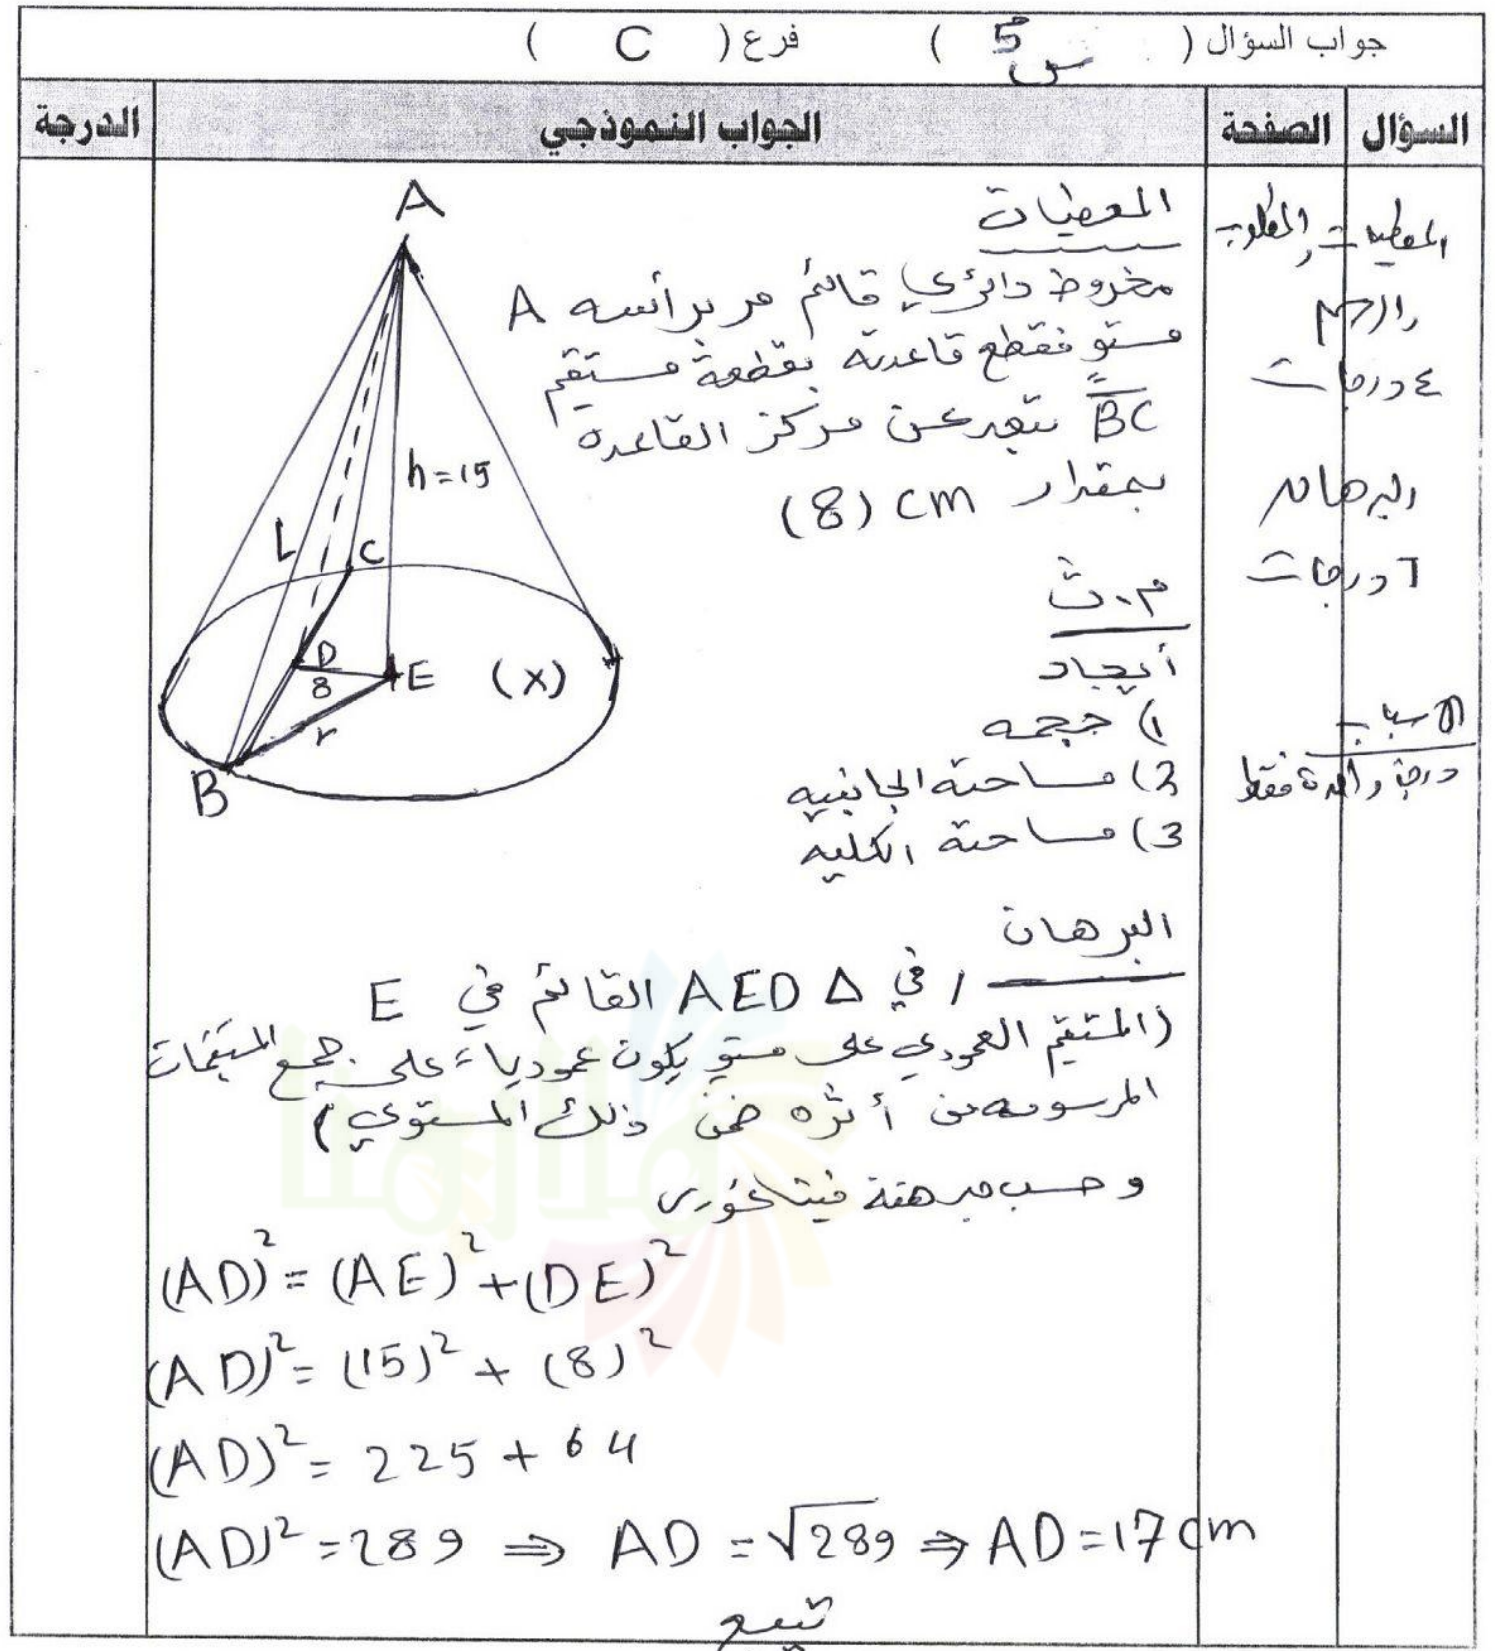 جواب السؤال ( س5 ) فرع ( C )
السؤال الصفحة الجواب النموذجي الدرجة
المعطيات والمطلوب
والرسم
٤ درجات
البرهان
٦ درجات
الأسباب
درجة واحدة فقط
A
h=15
L
C
D
8
E
(X)
r
B
المعطيات
مخروط دائري قائم مر برأسه A
مستو فقطع قاعدته بقطعة مستقيم
BC تبعد عن مركز القاعدة
بمقدار (8) cm
م.ث
أيجاد
1) حجمه
2) مساحته الجانبيه
3) مساحته الكليه
البرهان / في Δ AED القائم في E
(المستقيم العمودي على مستوٍ يكون عمودياً على جميع المستقيمات
المرسومه من أثره ضمن ذلك المستوي)
وحسب مبرهنة فيثاغورس
(AD)² = (AE)² + (DE)²
(AD)² = (15)² + (8)²
(AD)² = 225 + 64
(AD)² = 289 ⇒ AD = √289 ⇒ AD = 17 cm
تتبع